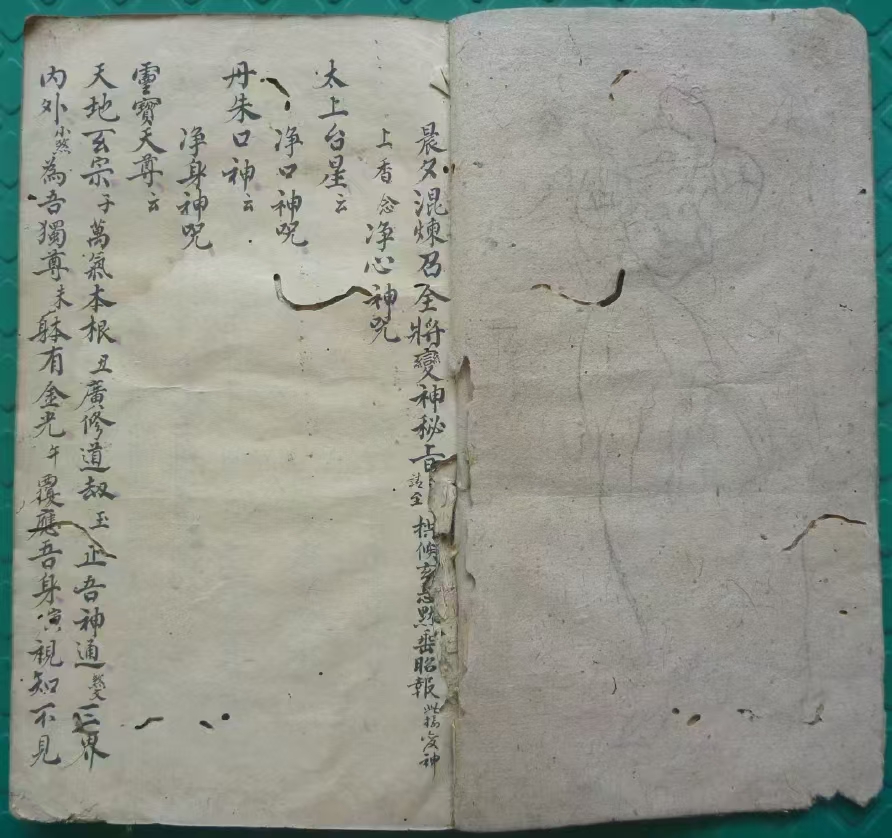 晨夕混煉召全將變神秘旨 請全 拱候玄 默垂昭報 此 変神
上香念净心神咒
太上台星云
净口神咒
丹朱口神云
净身神咒
靈寶天尊云
天地玄宗子萬氣本根丑廣修道刼玉正吾神通 三界
内外 為吾獨尊未躰有金光午覆應吾身演視知不見